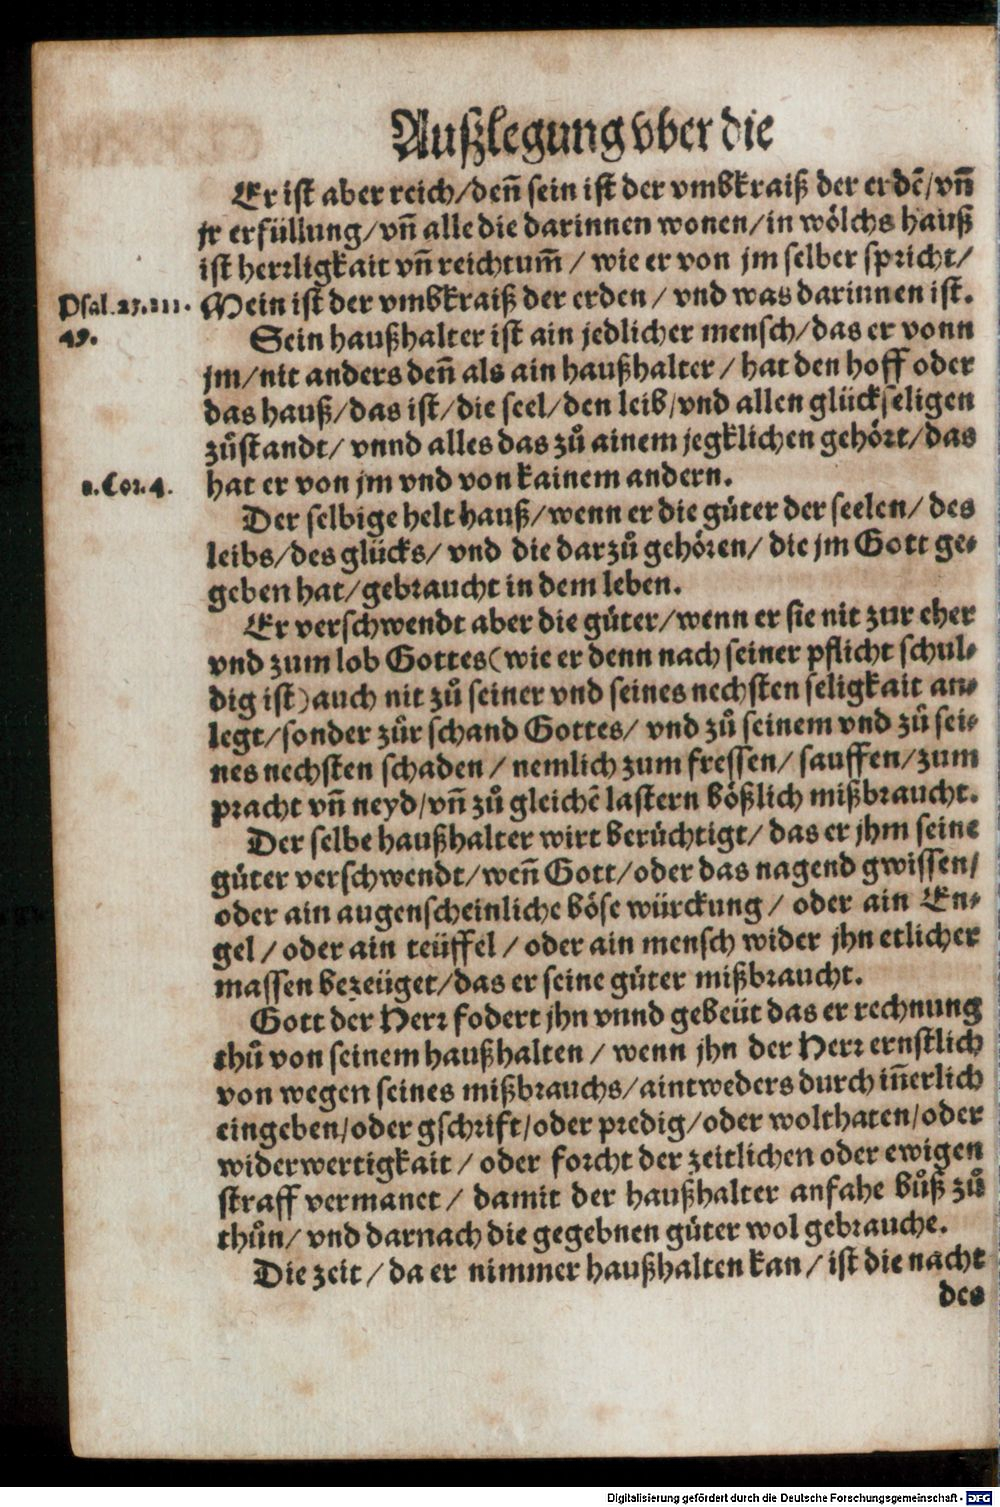 Außlegung vber die
Er ist aber reich/ deñ sein ist der vmbkraiß der erdẽ/ vñ
jr erfüllung/ vñ alle die darinnen wonen/ in wölchs hauß
ist herrligkait vñ reichtum̃ / wie er von jm selber spricht/
Psal. 23. 111.
Mein ist der vmbkraiß der erden / vnd was darinnen ist.
49.
Sein haußhalter ist ain jedlicher mensch/ das er vonn
jm/ nit anders deñ als ain haußhalter / hat den hoff oder
das hauß/ das ist/ die seel/ den leib/ vnd allen glückseligen
zůstandt/ vnnd alles das zů ainem jegklichen gehört/ das
1. Cor. 4.
hat er von jm vnd von kainem andern.
Der selbige helt hauß/ wenn er die güter der seelen/ des
leibs/ des glücks/ vnd die darzů gehören/ die jm Gott ge-
geben hat/ gebraucht in dem leben.
Er verschwendt aber die güter/ wenn er sie nit zur eher
vnd zum lob Gottes (wie er denn nach seiner pflicht schul-
dig ist) auch nit zů seiner vnd seines nechsten seligkait an-
legt/ sonder zůr schand Gottes/ vnd zů seinem vnd zů sei-
nes nechsten schaden / nemlich zum fressen/ sauffen/ zum
pracht vñ neyd/ vñ zů gleichẽ lastern bößlich mißbraucht.
Der selbe haußhalter wirt berüchtigt/ das er jhm seine
güter verschwendt/ weñ Gott/ oder das nagend gwissen/
oder ain augenscheinliche böse würckung / oder ain En-
gel / oder ain teüffel / oder ain mensch wider jhn etlicher
massen bezeüget/ das er seine güter mißbraucht.
Gott der Herr fodert jhn vnnd gebeüt das er rechnung
thů von seinem haußhalten / wenn jhn der Herr ernstlich
von wegen seines mißbrauchs/ aintweders durch iñerlich
eingeben/ oder gschrift/ oder predig/ oder wolthaten/ oder
widerwertigkait / oder forcht der zeitlichen oder ewigen
straff vermanet / damit der haußhalter anfahe bůß zů
thůn/ vnd darnach die gegebnen güter wol gebrauche.
Die zeit / da er nimmer haußhalten kan/ ist die nacht
des
Digitalisierung gefördert durch die Deutsche Forschungsgemeinschaft - DFG